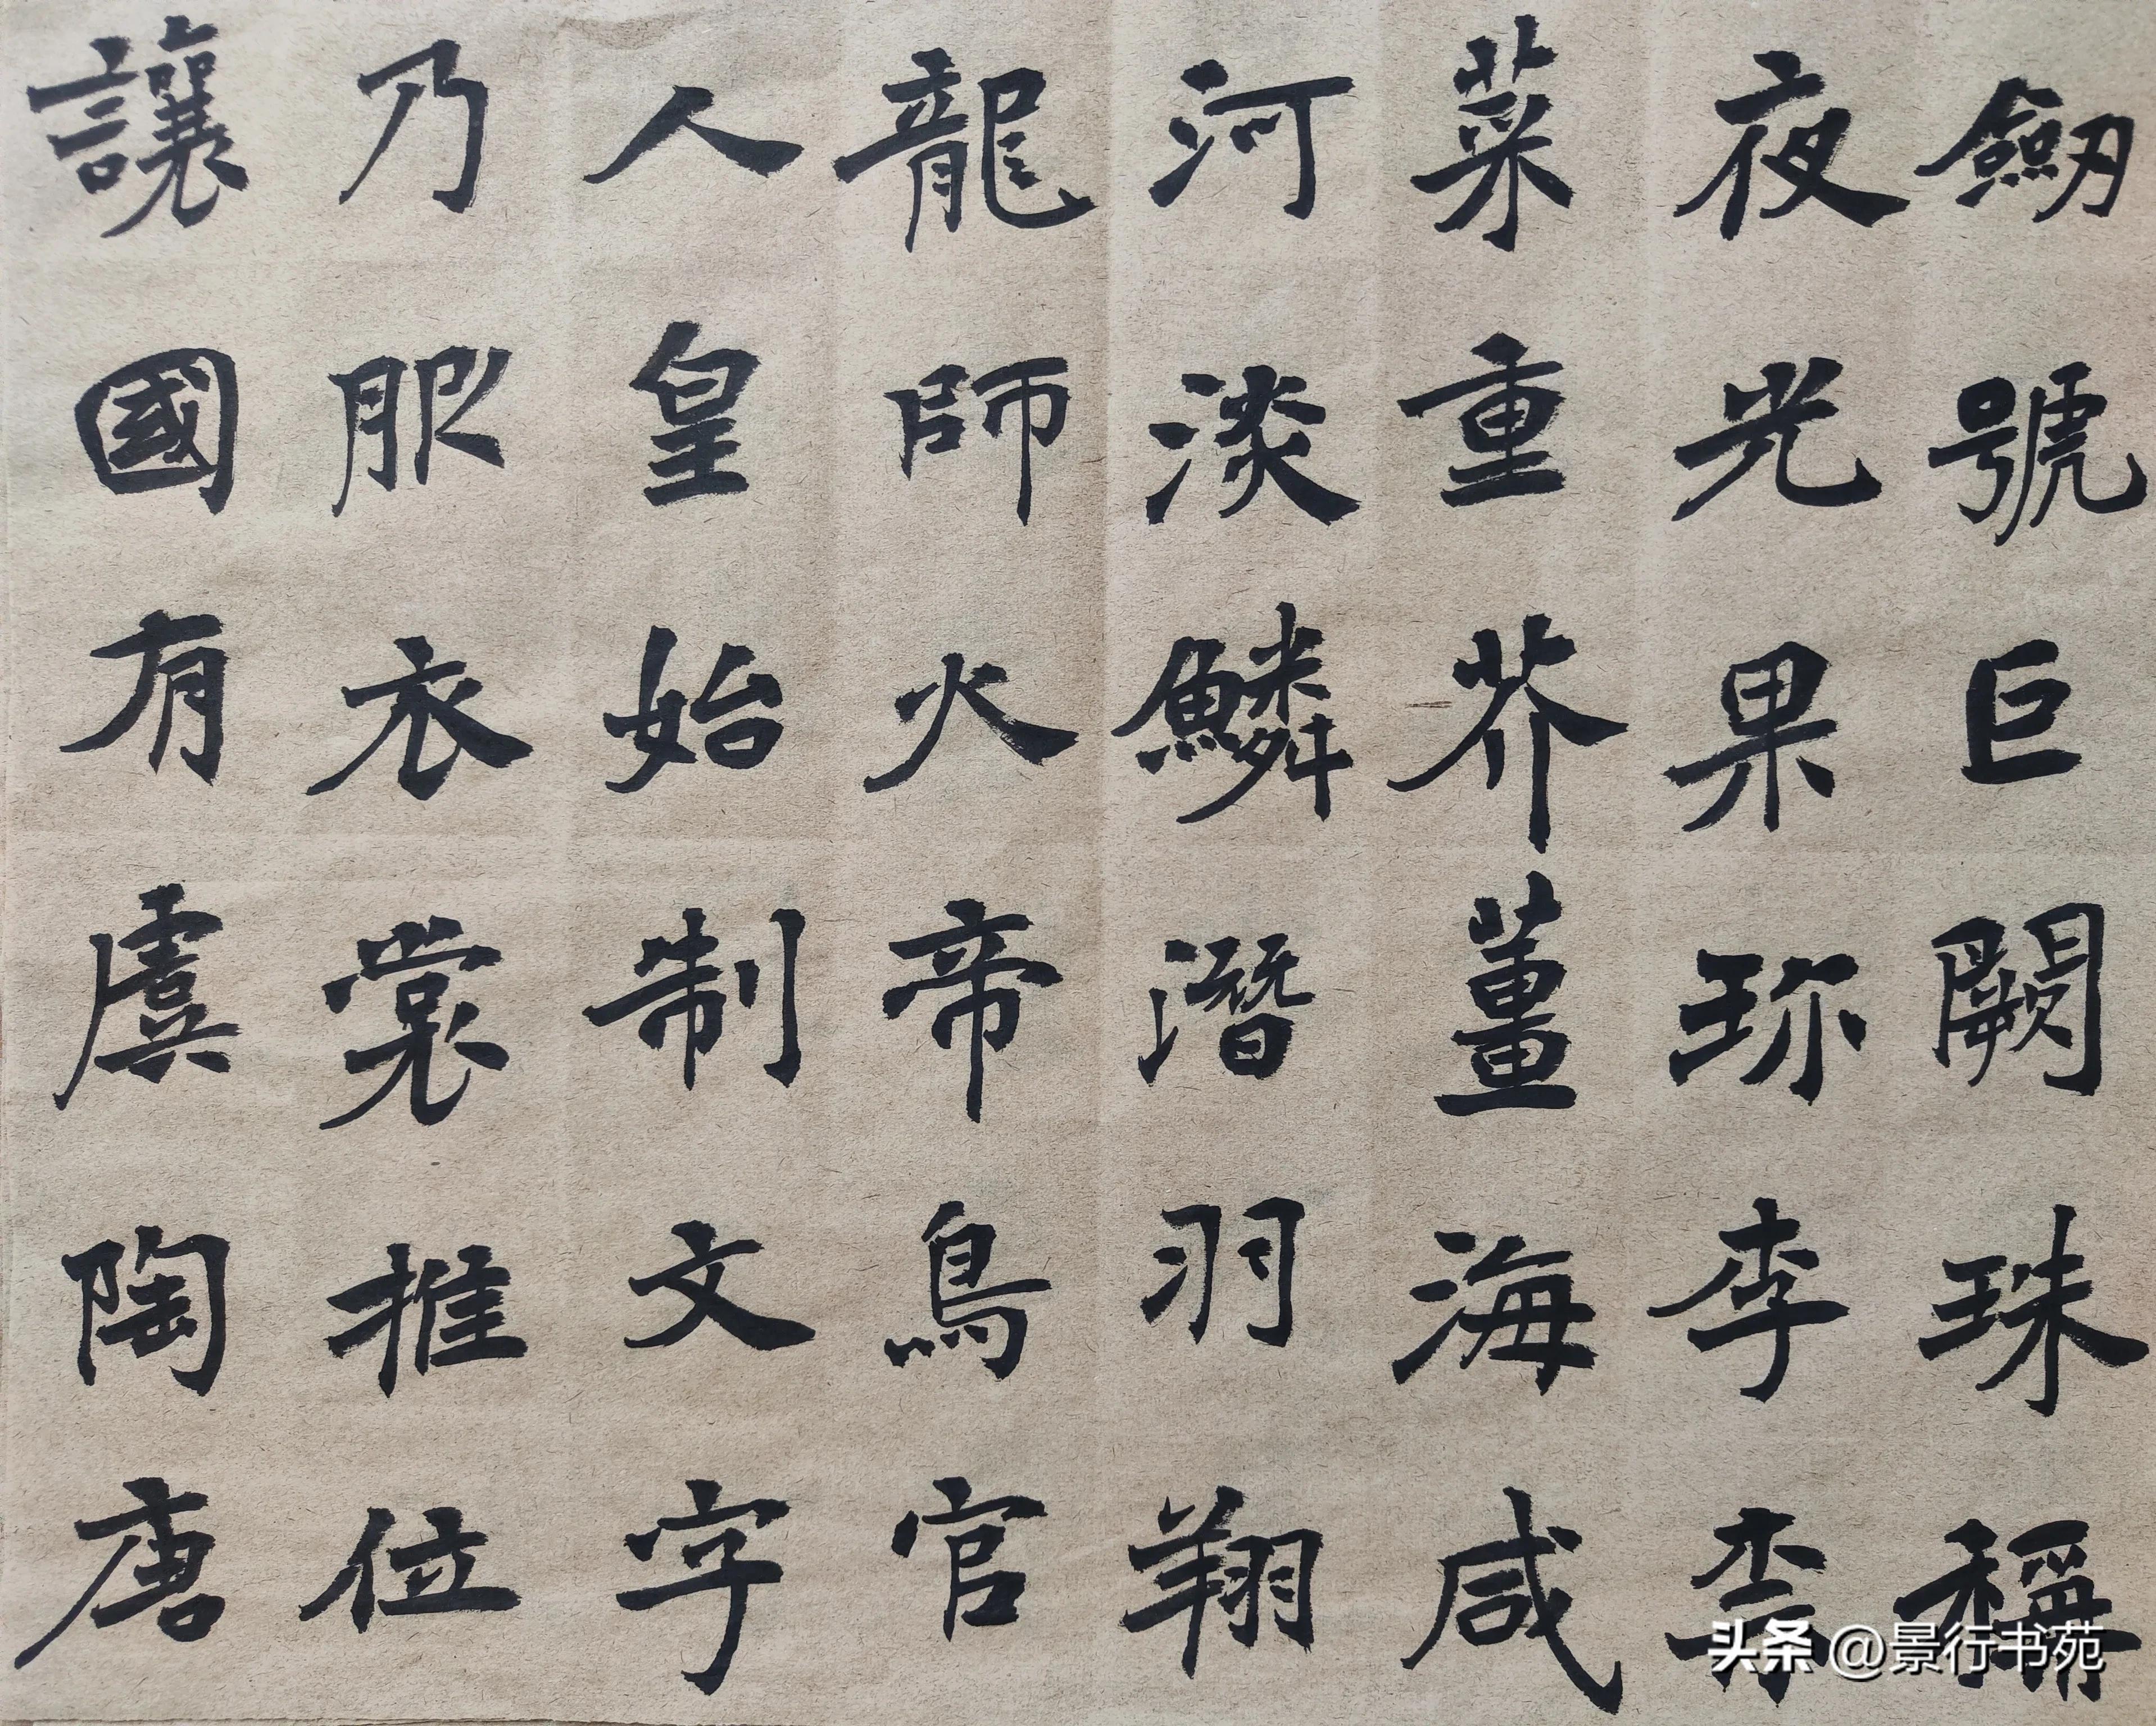 劒號巨闕珠稱
夜光果珎李柰
菜重芥薑海咸
河淡鱗潛羽翔
龍師火帝鳥官
人皇始制文字
乃服衣裳推位
讓國有虞陶唐
头条 @景行书苑